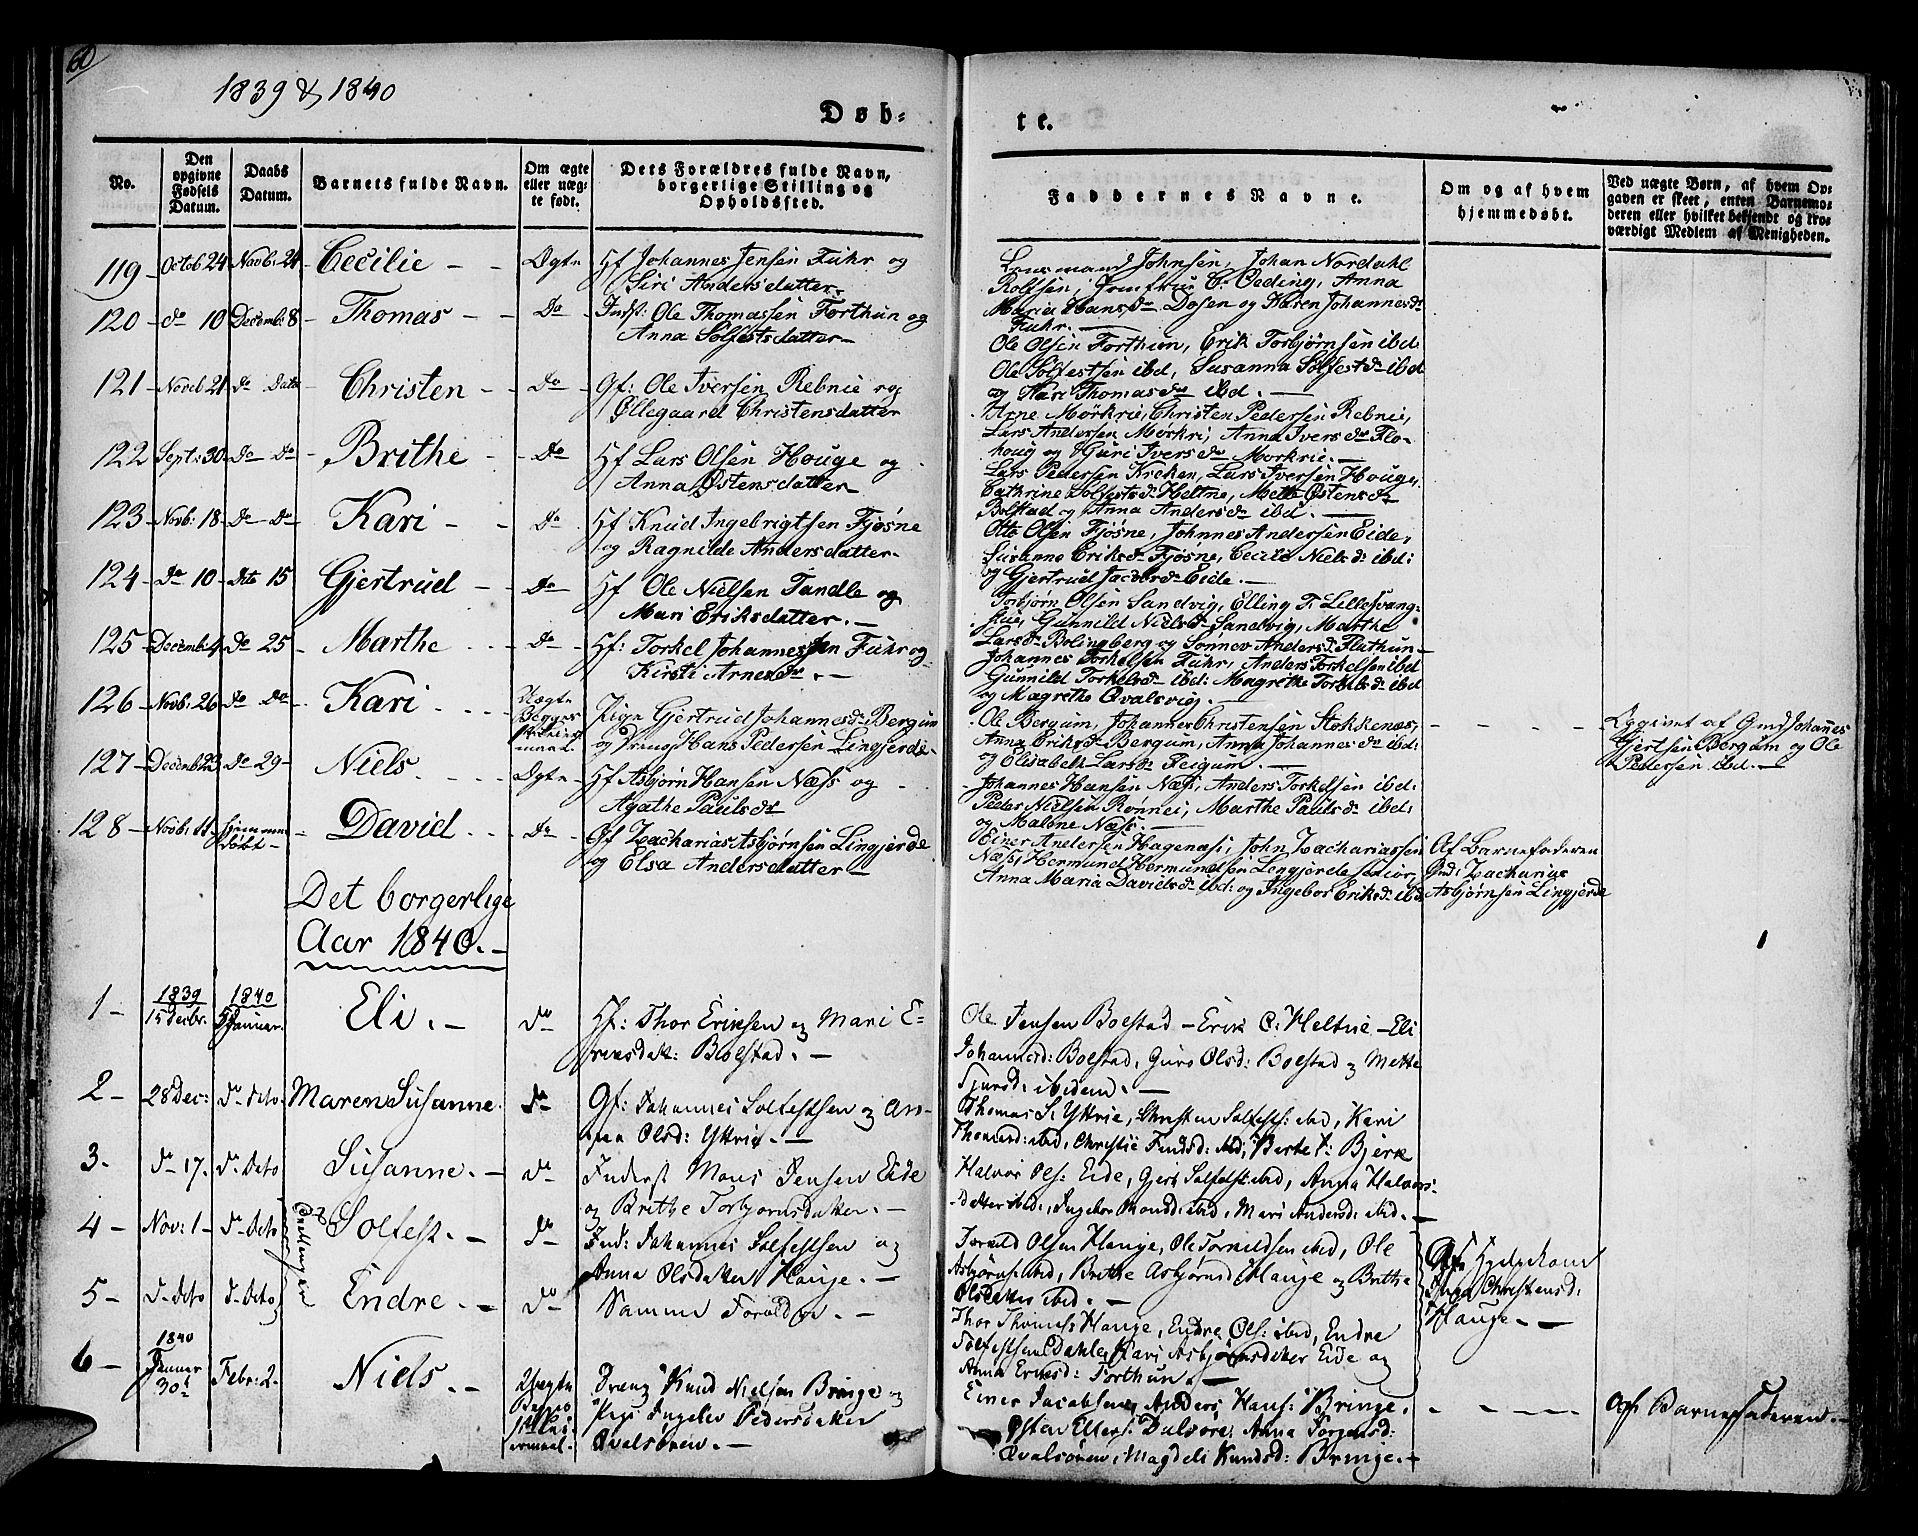 60
1839 & 1840
Døb-
te.
No.
Den opgivne Fødsels Datum.
Daabs Datum.
Barnets fulde Navn.
Om ægte eller uægte født.
Dets Forældres fulde Navn, borgerlige Stilling og Opholdssted.
Faddernes Navne.
Om og af hvem hjemmedøbt.
Ved uægte Børn, af hvem Opgaven er skeet, enten Barnemoderen eller hvilket bekjendt og troværdigt Medlem af Menigheden.
119 Octob: 24 Novb: 24 Cecilie Ægte Hf Johannes Jensen Fuhr og
Siri Andersdatter
Johnsen, Johan Nordahl
Rolfsen, Jomfrue C. Oeding, Anna
Maria Hansdr Dosen og Karen Johannesdr
Fuhr.
120 do 10 Decemb: 8 Thomas Do Indst: Ole Thomassen Forthun og
Anna Solfestsdatter
Ole Olsen Forthun, Erik Torbjørnsen ibd:
Ole Solfestsen ibd, Susanna Solfestdr ibd
og Kari Thomasdr ibd.
121 Novb 21 do Dato Christen Do Gf: Ole Iversen Rebnie og
Øllegaard Christensdatter
Arne Mørkrie, Christen Pedersen Rebnie,
Lars Andersen Mørkri, Anna Iversdr Flo-
houg og Guri Iversdr Morkrie.
122 Sept: 30 do Do Brithe Do Hf Lars Olsen Houge og
Anna Østensdatter
Lars Pedersen Kreken, Lars Iversen Houge,
Cathrine Solfestsdr Heltne, Mette Østensdr
Bolstad og Anna Andersdr ibd.
123 Novb: 18 Do Do Kari Do Hf Knud Ingebrigtsen Fjøsne
og Ragnilde Andersdatter
Otto Olsen Fjøsne, Johannes Andersen Eide,
Susanne Eriksdr Fjøsne, Cecile Nielsdr ibd:
og Gjertrud Jacobsdr Eide.
124 Do 10 Dito 15 Gjertrud Do Hf Ole Nielsen Tandle og
Mari Eriksdatter.
Torbjørn Olsen Sandvig, Elling T. Lillesvang-
stue, Gunnild Nielsdr Sandvig, Marthe
Larsdr Bolingberg og Sønnev Andersdr Fluthun
125 Decemb: 4 Do 25 Marthe Do Hf: Torkel Johannessen Fuhr og
Kirsti Arnesdr.
Johannes Torkelsen Fuhr, Anders Torkelsen ibd
Gunnild Torkelsdr ibd: Magrethe Torkelsdr ibd
og Magrethe Qvalsvig.
126 Novb: 26 Do Do Kari Uægte
Begges
Pige Gjertrud Johannesdr Bergum
og Dreng Hans Pedersen Lingjerde
Ole Bergum, Johannes Christensen Stokkenæs,
Anna Eriksdr Bergum, Anna Johannesdr ibd:
og Elisabeth Larsdr Bergum.
Opgivet af Gmd Johannes
Gjertsen Bergum og Ole
Pedersen ibd.
127 Decemb 23 Do 29 Niels Ægte Hf Asbjørn Hansen Næss og
Agathe Paulsdr
Johannes Hansen Næss, Anders Torkelsen ibd:
Peder Nielsen Rønnei, Marthe Paulsdr ibd:
og Malene Næss.
128 Novb: 11 hjemme
døbt David Do Gf Zacharias Asbjørnsen Lingjerde
og Elsa Andersdatter
Einer Andersen Hagenæs, John Zachariassen
Næss, Hermund Hermundsen Lingjerde
Anna Maria Davidsdr ibd: og Ingebor Eriksdr ibd.
Af Barnefaderen
Gmd: Zacharias
Asbjørnsen Lingjerde
Det borgerlige
Aar 1840.
1 1839
15 Decbr. 1840
Januar. Eli. do Hf: Thor Eriksen og Mari E-
riksdat: Bolstad.
Ole Jensen Bolstad - Erik O: Heltne - Eli
Johannesd: Bolstad, Guro Olsd: Bolstad og Mette
Sjursd: ibidem.
2 28 Dec: do dito Maren Susanne do Gf: Johannes Solfestsen og An-
na Olsd: Yttrie.
Thomas S. Yttrie, Christen Solfests: ibd, Kari
Thomasd: ibd, Christie Knudsd: ibd, Berte P: Bjerk
3. do 17. do dito Susanne. do Inderst Mons Jensen Eide
og Brithe Torbjørnsdatter.
Halvor Ols: Eide, Gjert Solfests: ibd, Anna Halvors-
datter ibd, Ingebor Monsd: ibd, Mari Andersd: ibd.
4 Nov: 1 do dito Tvillinger Solfest. do Ind: Johannes Solfestsen og
Anna Olsdatter Hauge.
Torkild Olsen Hauge, Ole Torkildsen ibd, Ole
Asbjørns: ibd, Brithe Asbjørnsd Hauge og Brithe
Olsdatter ibd.
Af Hydekone
Inga Christensd:
Hauge.
5 do dito do dito Endre. do Samme Foreldre.
Thor Thomess Hauge, Endre Ols: ibd, Endre
Solfestsen Dahle, Kari Asbjørnsdatter Eide og
Anna Eriksd: Forthun.
6 1840
Januar
30te Febr: 2. Niels. Uægte
Begges
Dreng Knud Nielsen Bringe og
Pige Ingelev Pedersdatter
Qvalsøren.
Einer Jacobsen, Anders Hans: Bringe,
Østen Ellens: Dulsøre, Anna Torgersd:
Qvalsøren, Magdeli Knudsd: Bringe.
Af Barnefaderen.